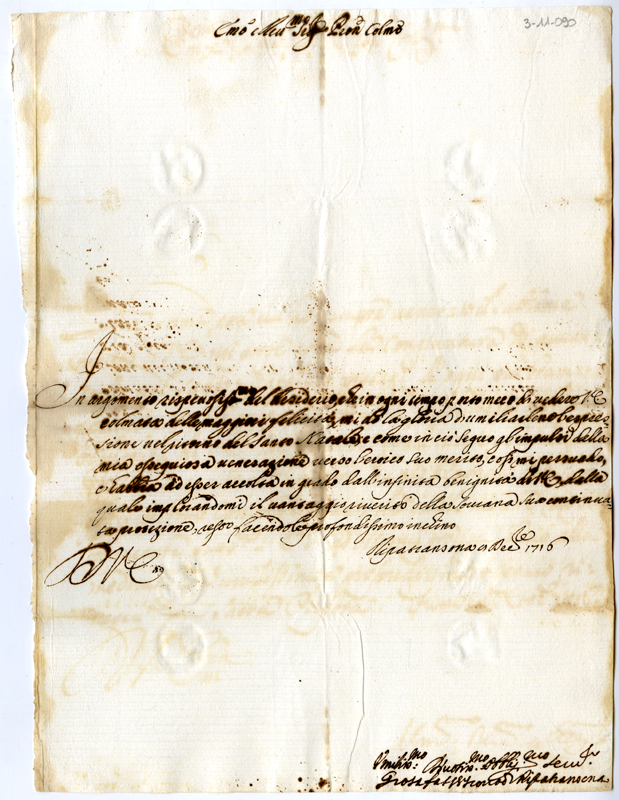 Emo e Revmo Sigr Pron Colmo
3-11-090
In argomento rispettosissmo del desiderio, che in ogni tempo porto meco di vedere V.E.
colmata delle maggiori felicità, mi dò la gloria d'umiliarlene l'espres-
sione nel Giorno del Santo Natale; e come in ciò seguo gl'impulsi della
mia ossequiosa venerazione verso l'eroico suo merito, così mi persuado,
debba di esser accolta in grado dall'infinita benignità di V.E. dalla
quale implorandomi il vantaggio riverito della sovrana sua continua-
ta protezione, resto facendole profondissimo inchino
Ripatransona 9 Dec.re 1716
D V E
Umilmo Divotmo Obblgmo Servr
Vescovo di Ripatransona